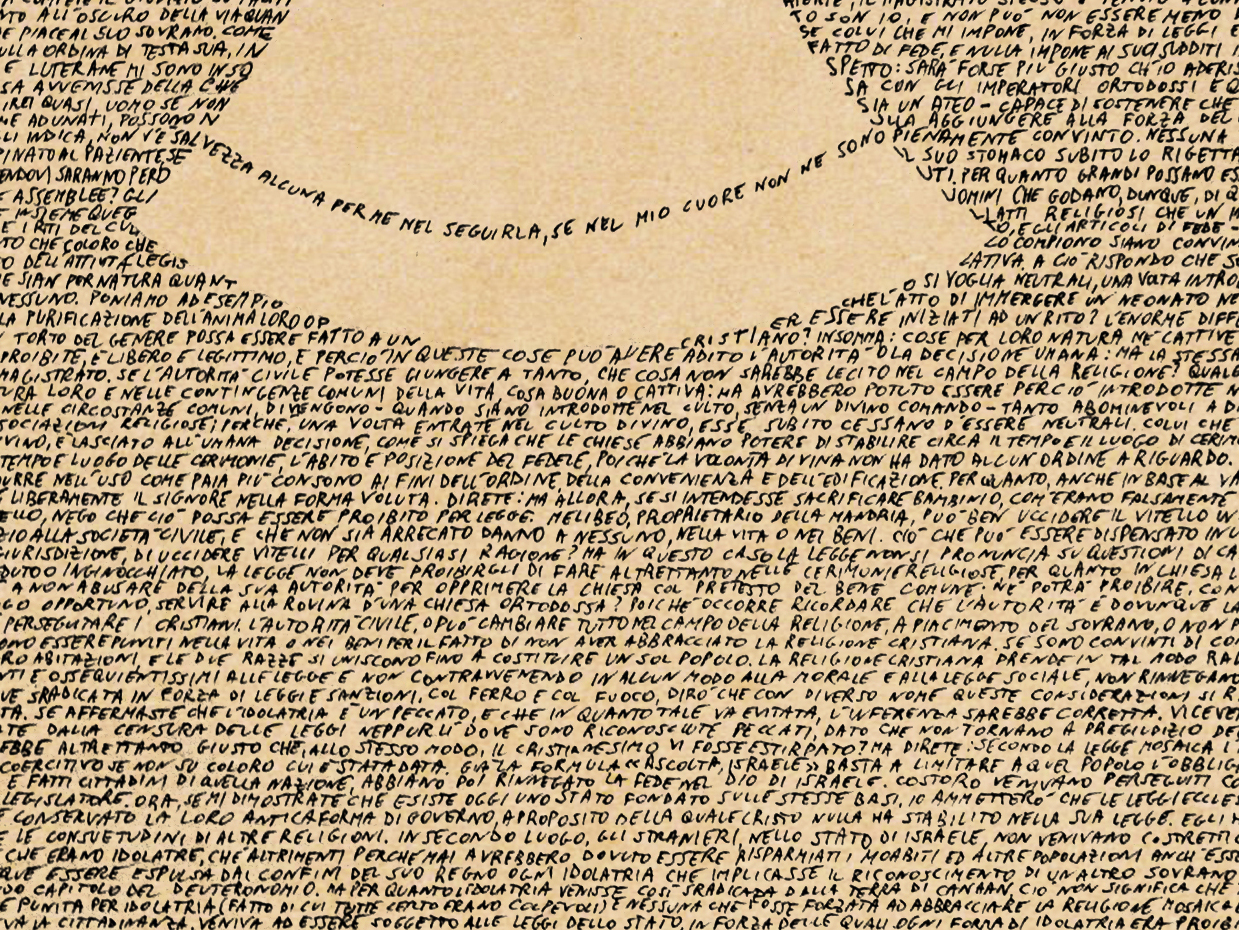 NTO ALL'OSCURO DELLA VIA QUAN
TO SON IO, E NON PUO' NON ESSERE MENO
E PIACE AL SUO SOVRANO. COME
SE COLUI CHE MI IMPONE, IN FORZA DI LEGGI E
ULLA ORDINA DI TESTA SUA, IN
FATTO DI FEDE, E NULLA IMPONE AI SUOI SUDDITI I
E LUTERANE MI SONO IN SO
SPETTO: SARA' FORSE PIU' GIUSTO CH'IO ADERIS
SA AVVENISSE DELLA CHE
SA CON GLI IMPERATORI ORTODOSSI E Q
IREI QUASI, UOMO SE NON
SIA UN ATEO - CAPACE DI SOSTENERE CHE
ME ADUNATI, POSSONO N
SUA AGGIUNGERE ALLA FORZA DEL
LI INDICA, NON V'E' SALVEZZA ALCUNA PER ME NEL SEGUIRLA, SE NEL MIO CUORE NON NE SONO PIENAMENTE CONVINTO. NESSUNA
PINATO AL PAZIENTE SE
L SUO STOMACO SUBITO LO RIGETTA
ENDOVI SARANNO PERD
UTI. PER QUANTO GRANDI POSSANO ES
E ASSEMBLEE? GLI
UOMINI CHE GODANO, DUNQUE, DI Q
E INSIEME QUEG
LI ATTI RELIGIOSI CHE UN M
E I RITI DEL CUL
O, E GLI ARTICOLI DI FEDE -
TO CHE COLORO CHE
LO COMPIONO SIANO CONVIN
O DELL'ATTIVITA LEGIS
LATIVA. A CIO' RISPONDO CHE SE
E SIAN PER NATURA QUANT
O SI VOGLIA NEUTRALI, UNA VOLTA INTRO
NESSUNO. PONIAMO AD ESEMPIO
CHE L'ATTO DI IMMERGERE UN NEONATO NE
LA PURIFICAZIONE DELL'ANIMA LORO OP
ER ESSERE INIZIATI AD UN RITO? L'ENORME DIFF
TORTO DEL GENERE POSSA ESSERE FATTO A UN
CRISTIANO? INSOMMA: COSE PER LORO NATURA NE' CATTIVE
PROIBITE, E' LIBERO E LEGITTIMO, E PERCIO' IN QUESTE COSE PUO' AVERE ADITO L'AUTORITA' O LA DECISIONE UMANA: MA LA STESSA
MAGISTRATO. SE L'AUTORITA' CIVILE POTESSE GIUNGERE A TANTO, CHE COSA NON SAREBBE LECITO NEL CAMPO DELLA RELIGIONE? QUAL
URA LORO E NELLE CONTINGENZE COMUNI DELLA VITA, COSA BUONA O CATTIVA: MA AVREBBERO POTUTO ESSERE PERCIO' INTRODOTTE N
NELLE CIRCOSTANZE COMUNI, DIVENGONO - QUANDO SIANO INTRODOTTE NEL CULTO, SENZA UN DIVINO COMANDO - TANTO ABOMINEVOLI A D
SOCIAZIONI RELIGIOSE; PERCHE', UNA VOLTA ENTRATE NEL CULTO DIVINO, ESSE SUBITO CESSANO D'ESSERE NEUTRALI. COLUI CHE
VINO, E' LASCIATO ALL'UMANA DECISIONE, COME SI SPIEGA CHE LE CHIESE ABBIANO POTERE DI STABILIRE CIRCA IL TEMPO E IL LUOGO DI CERIM
TEMPO E LUOGO DELLE CERIMONIE, L'ABITO E POSIZIONE DEL FEDELE, POICHE' LA VOLONTA' DIVINA NON HA DATO ALCUN ORDINE A RIGUARDO.
URRE NELL'USO COME PAIA PIU' CONSONO AI FINI DELL'ORDINE, DELLA CONVENIENZA E DELL'EDIFICAZIONE, PER QUANTO, ANCHE IN BASE AL VA
LIBERAMENTE IL SIGNORE NELLA FORMA VOLUTA. DIRETE: MA ALLORA, SE SI INTENDESSE SACRIFICARE BAMBINI O, COM'ERANO FALSAMENTE
ELLO, NEGO CHE CIO' POSSA ESSERE PROIBITO PER LEGGE. MELIBEO, PROPRIETARIO DELLA MANDRIA, PUO' BEN UCCIDERE IL VITELLO IN
ZIO ALLA SOCIETA' CIVILE, E CHE NON SIA ARRECATO DANNO A NESSUNO, NELLA VITA O NEI BENI. CIO' CHE PUO' ESSERE DISPENSATO IN U
GIURISDIZIONE, DI UCCIDERE VITELLI PER QUALSIASI RAGIONE? MA IN QUESTO CASO LA LEGGE NON SI PRONUNCIA SU QUESTIONI DI CA
DUTO O INGINOCCHIATO, LA LEGGE NON DEVE PROIBIRGLI DI FARE ALTRETTANTO NELLE CERIMONIE RELIGIOSE, PER QUANTO IN CHIESA L
A NON ABUSARE DELLA SUA AUTORITA' PER OPPRIMERE LA CHIESA COL PRETESTO DEL BENE COMUNE: NE' POTRA' PROIBIRE, CON
GO OPPORTUNO, SERVIRE ALLA ROVINA D'UNA CHIESA ORTODOSSA? POICHE' OCCORRE RICORDARE CHE L'AUTORITA' E' DOVUNQUE LA
PERSEGUITARE I CRISTIANI. L'AUTORITA' CIVILE, O PUO' CAMBIARE TUTTO NEL CAMPO DELLA RELIGIONE, A PIACIMENTO DEL SOVRANO, O NON P
ONO ESSERE PUNITI NELLA VITA O NEI BENI PER IL FATTO DI NON AVER ABBRACCIATO LA RELIGIONE CRISTIANA. SE SONO CONVINTI DI CO
RO ABITAZIONI, E LE DUE RAZZE SI UNISCONO FINO A COSTITUIRE UN SOL POPOLO. LA RELIGIONE CRISTIANA PRENDE IN TAL MODO RAD
NTI E OSSEQUIENTISSIMI ALLE LEGGE E NON CONTRAVVENENDO IN ALCUN MODO ALLA MORALE E ALLA LEGGE SOCIALE, NON RINNEGANO
VE SRADICATA IN FORZA DI LEGGI E SANZIONI, COL FERRO E COL FUOCO, DIRO' CHE CON DIVERSO NOME QUESTE CONSIDERAZIONI SI R
TA. SE AFFERMASTE CHE L'IDOLATRIA E' UN PECCATO, E CHE IN QUANTO TALE VA EVITATA, L'INFERENZA SAREBBE CORRETTA. VICEVE
TE DALLA CENSURA DELLE LEGGI NEPPUR LI' DOVE SONO RICONOSCIUTE PECCATI, DATO CHE NON TORNANO A PREGIUDIZIO DE
EBBE ALTRETTANTO GIUSTO CHE, ALLO STESSO MODO, IL CRISTIANESIMO VI FOSSE ESTIRPATO? MA DIRETE: SECONDO LA LEGGE MOSAICA L'I
COERCITIVO SE NON SU COLORO CUI E' STATA DATA. GIA' LA FORMULA «ASCOLTA, ISRAELE» BASTA A LIMITARE A QUEL POPOLO L'OBBLIG
E FATTI CITTADINI DI QUELLA NAZIONE, ABBIANO POI RINNEGATO LA FEDE NEL DIO DI ISRAELE. COSTORO VENIVANO PERSEGUITI CO
LEGISLATORE. ORA, SE MI DIMOSTRATE CHE ESISTE OGGI UNO STATO FONDATO SULLE STESSE BASI, IO AMMETTERO' CHE LE LEGGI ECCLES
CONSERVATO LA LORO ANTICA FORMA DI GOVERNO, A PROPOSITO DELLA QUALE CRISTO NULLA HA STABILITO NELLA SUA LEGGE. EGLI H
E LE CONSUETUDINI DI ALTRE RELIGIONI. IN SECONDO LUOGO, GLI STRANIERI, NELLO STATO DI ISRAELE, NON VENIVANO COSTRETTI
CHE ERANO IDOLATRE, CHE' ALTRIMENTI PERCHE' MAI AVREBBERO DOVUTO ESSERE RISPARMIATI I MOABITI ED ALTRE POPOLAZIONI ANCH'ESS
QUE ESSERE ESPULSA DAI CONFINI DEL SUO REGNO OGNI IDOLATRIA CHE IMPLICASSE IL RICONOSCIMENTO DI UN ALTRO SOVRANO
DO CAPITOLO DEL DEUTERONOMIO. MA PER QUANTO L'IDOLATRIA VENISSE COSI' SRADICATA DALLA TERRA DI CANAAN, CIO' NON SIGNIFICA CHE
E PUNITA PER IDOLATRIA (FATTO DI CUI TUTTE CERTO ERANO COLPEVOLI) E NESSUNA CHE FOSSE FORZATA AD ABBRACCIARE LA RELIGIONE MOSAICA
VA LA CITTADINANZA, VENIVA AD ESSERE SOGGETTO ALLE LEGGI DELLO STATO, IN FORZA DELLE QUALI OGNI FORMA DI IDOLATRIA ERA PROIBI